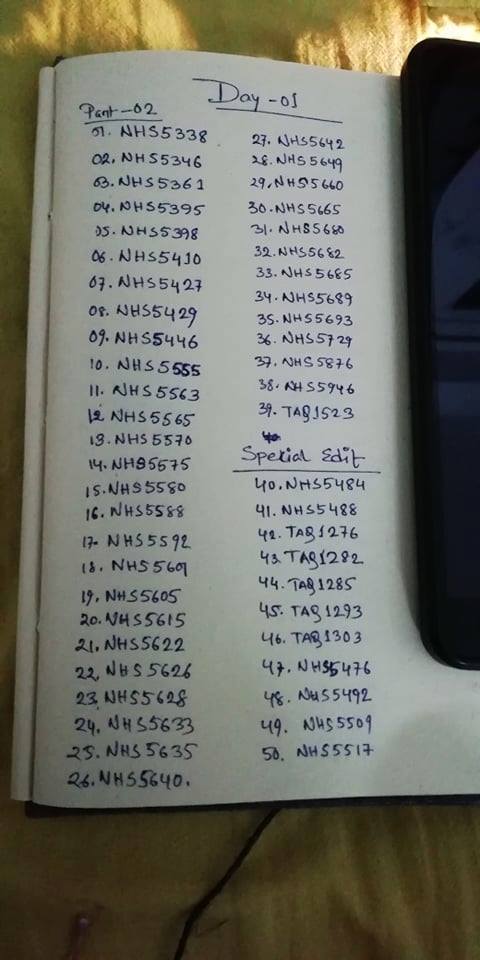 Day - 01
Part - 02
01. NHS5338
02. NHS5346
03. NHS5361
04. NHS5395
05. NHS5398
06. NHS5410
07. NHS5427
08. NHS5429
09. NHS5446
10. NHS5555
11. NHS5563
12 NHS5565
13. NHS5570
14. NHS5575
15. NHS5580
16. NHS5588
17. NHS5592
18. NHS5601
19. NHS5605
20. NHS5615
21. NHS5622
22. NHS5626
23. NHS5628
24. NHS5633
25. NHS5635
26. NHS5640.
27. NHS5642
28. NHS5649
29. NHS5660
30. NHS5665
31. NHS5680
32. NHS5682
33. NHS5685
34. NHS5689
35. NHS5693
36. NHS5729
37. NHS5876
38. NHS5946
39. TAB1523
Spekial Edit
40. NHS5484
41. NHS5488
42. TAB1276
43. TAB1282
44. TAB1285
45. TAB1293
46. TAB1303
47. NHS5476
48. NHS5492
49. NHS5509
50. NHS5517